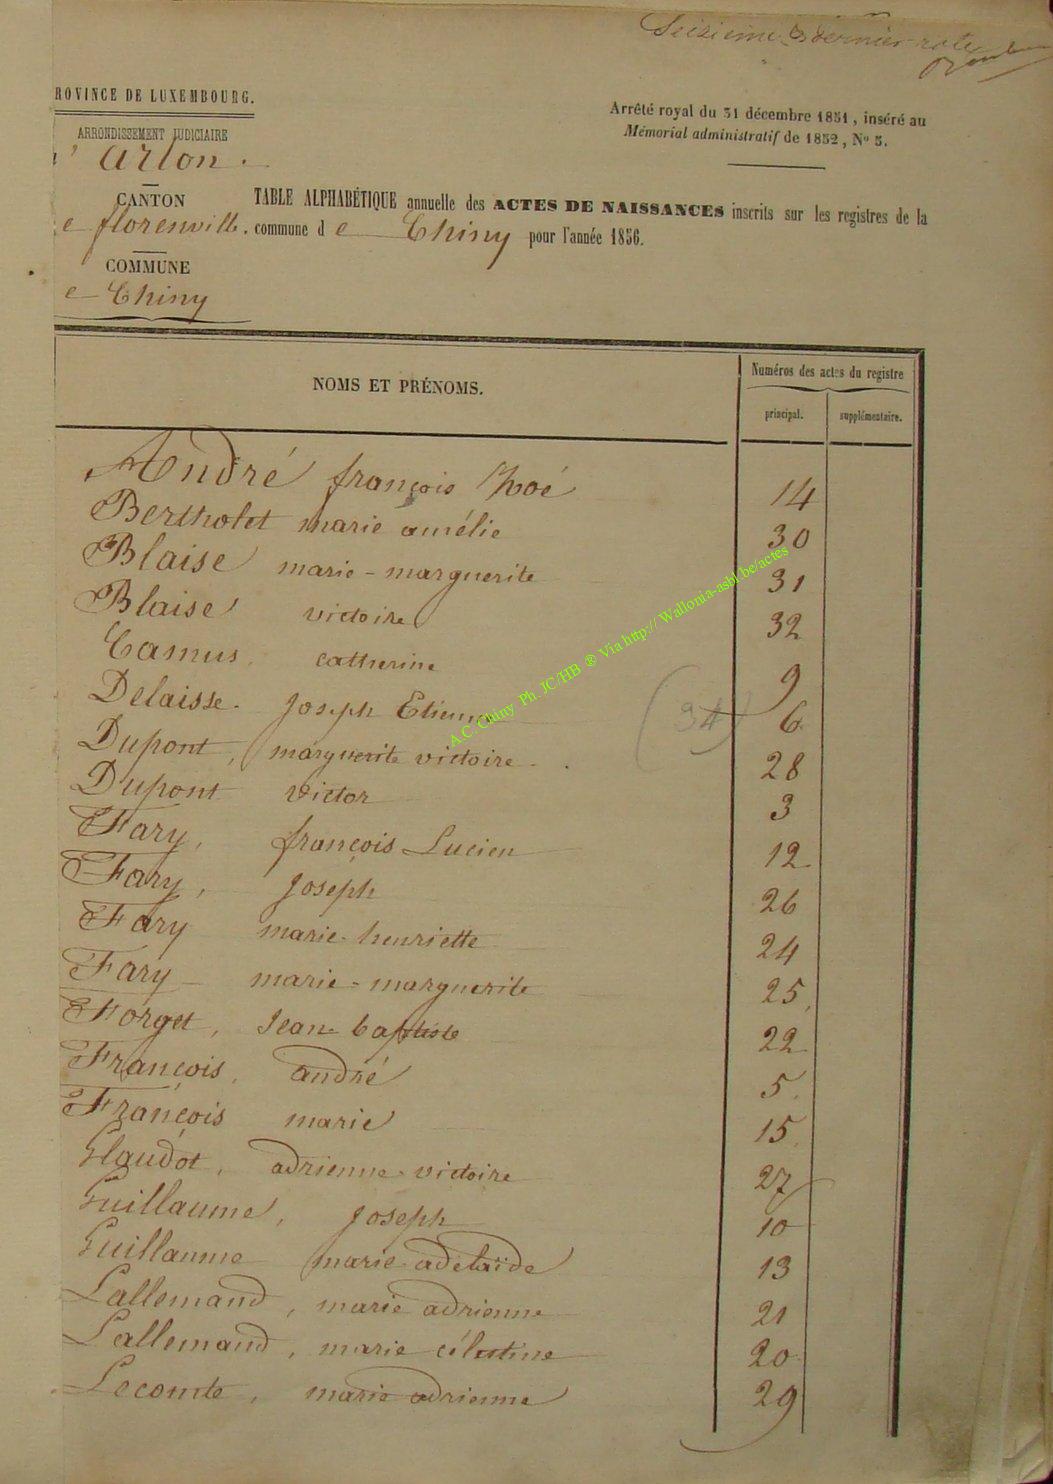 Seizième & dernier rôle
ROVINCE DE LUXEMBOURG.
ARRONDISSEMENT JUDICIAIRE
d'Arlon.
CANTON
e florenville.
COMMUNE
e Chiny
Arrêté royal du 31 décembre 1851, inséré au
Mémorial administratif de 1852, No 5.
TABLE ALPHABÉTIQUE annuelle des ACTES DE NAISSANCES inscrits sur les registres de la
commune d e Chiny pour l'année 1856.
NOMS ET PRÉNOMS.
Numéros des actes du registre
principal. supplémentaire.
André françois 14
Bertholet marie amélie 30
Blaise marie-marguerite 31
Blaise victoire 32
Camus catherine 9
Delaisse. Joseph Etienne (34) 6
Dupont, marguerite victoire. 28
Dupont victor 3
Fary, françois Lucien 12
Fary, Joseph 26
Fary marie-henriette 24
Fary marie-marguerite 25
Forget, Jean-baptiste 22
François, andré 5
François marie 15
Glaudot, adrienne-victoire 27
Guillaume, Joseph 10
Guillaume marie-adelaïde 13
Lallemand, marie adrienne 21
Lallemand, marie célestine 20
Lecomte, marie adrienne 29
A.C. Chiny Ph. JC/HB ® Via http:// Wallonia-asbl.be/actes